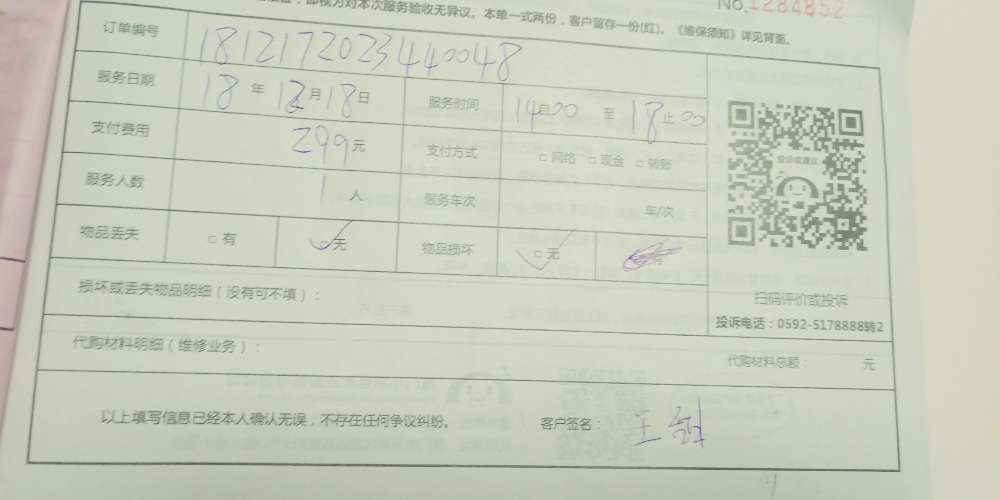 No.1284852
即视为对本次服务验收无异议。本单一式两份，客户留存一份(红)。《维保须知》详见背面。
订单编号 1812172023440048
服务日期 18 年 12 月 18 日 服务时间 14:00 至 18 止 00
支付费用 299 元 支付方式 □ 网络 □ 现金 □ 转账
服务人数 1 人 服务车次 车/次
物品丢失 □ 有 □ 无 物品损坏 □ 无
损坏或丢失物品明细（没有可不填）：
扫码评价或投诉
投诉电话：0592-5178888转2
代购材料明细（维修业务）： 代购材料总额： 元
以上填写信息已经本人确认无误，不存在任何争议纠纷。 客户签名： 王